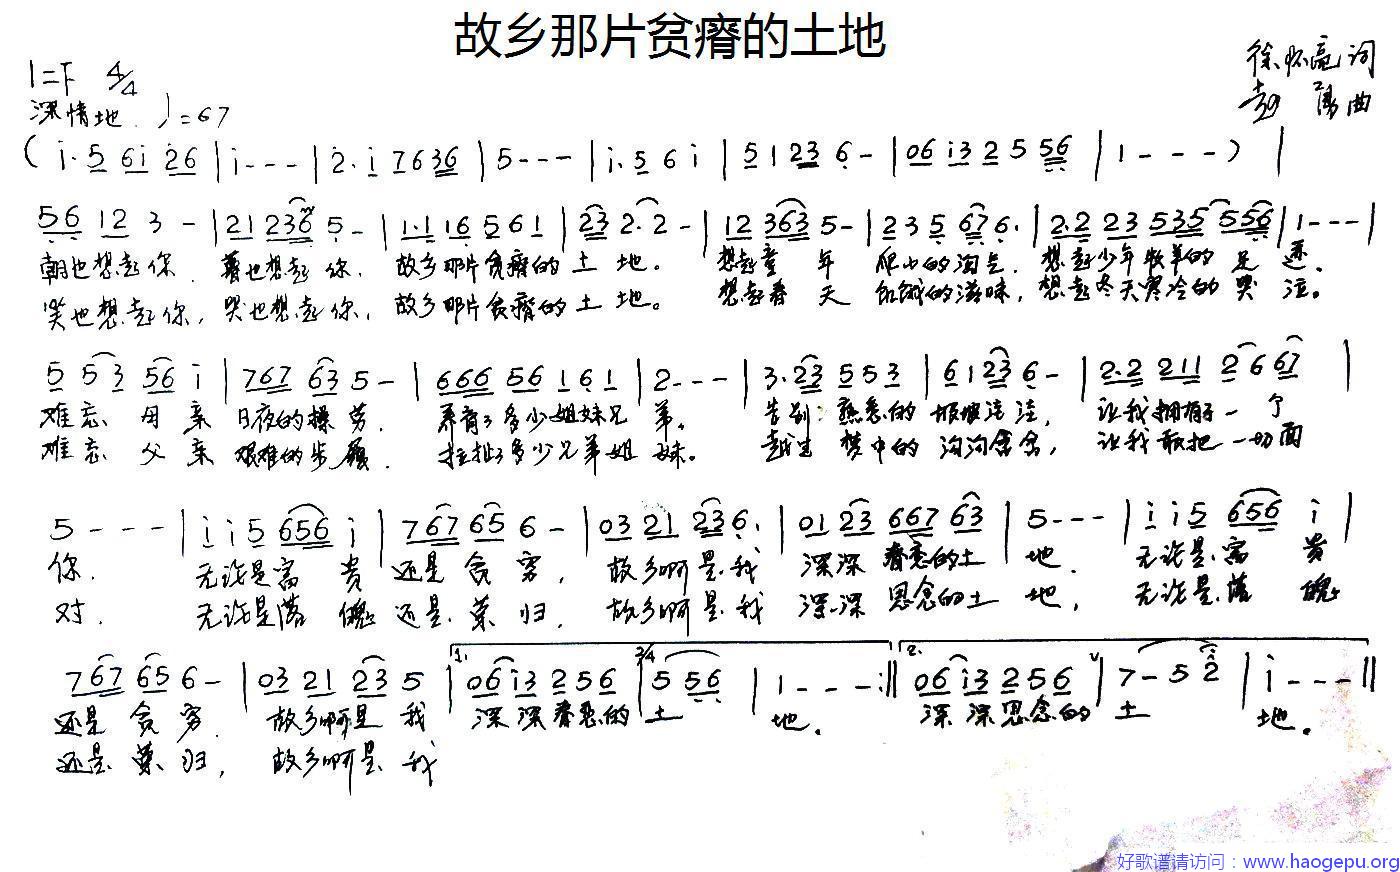 故乡那片贫瘠的土地
1=F 4/4
徐怀亮 词
深情地 ♩=67
曲
( i·5 6i 26 | i - - - | 2·i 7636 | 5 - - - | i·5 6 i | 5 1 23 6 - | 06 i3 2 5 56 | 1 - - - ) |
56 12 3 - | 21 236 5 - | 1·1 16 5 6 1 | 23 2·2 - | 12 363 5 - | 2 3 5 67 6· | 2·2 23 535 556 | 1 - - - |
朝也想起你 暮也想起你, 故乡那片贫瘠的土地。 想起童年 爬山的淘气, 想起少年牧羊的足迹。
笑也想起你, 哭也想起你, 故乡那片贫瘠的土地。 想起春天 饥饿的滋味, 想起冬天寒冷的哭泣。
5 53 56 i | 767 63 5 - | 666 56 161 | 2 - - - | 3·23 5 5 3 | 6 1 23 6 - | 2·2 211 2 6 67 |
难忘母亲日夜的操劳, 养育了多少姐妹兄弟。 告别 熟悉的坡坡洼洼, 让我拥有了一个
难忘父亲艰难的步履, 拉扯了多少兄弟姐妹。 越过梦中的沟沟岔岔, 让我敢把一切面
5 - - - | i i 5 656 i | 767 65 6 - | 03 21 23 6· | 01 23 667 63 | 5 - - - | i i 5 656 i |
你. 无论是富贵还是贫穷, 故乡啊是我 深深眷恋的土地. 无论是富贵
对. 无论是落魄还是荣归, 故乡啊是我 深深思念的土地, 无论是落魄
767 65 6 - | 03 21 23 5 | 1. 06 i3 2 5 6 | 2/4 5 56 | 1 - - - :‖ 2. 06 i3 2 5 6 | 7 - 5 2 | i - - - ‖
还是贫穷. 故乡啊是我 深深眷恋的土地。 深深思念的土地。
还是荣归, 故乡啊是我
好歌谱请访问：www.haogepu.org